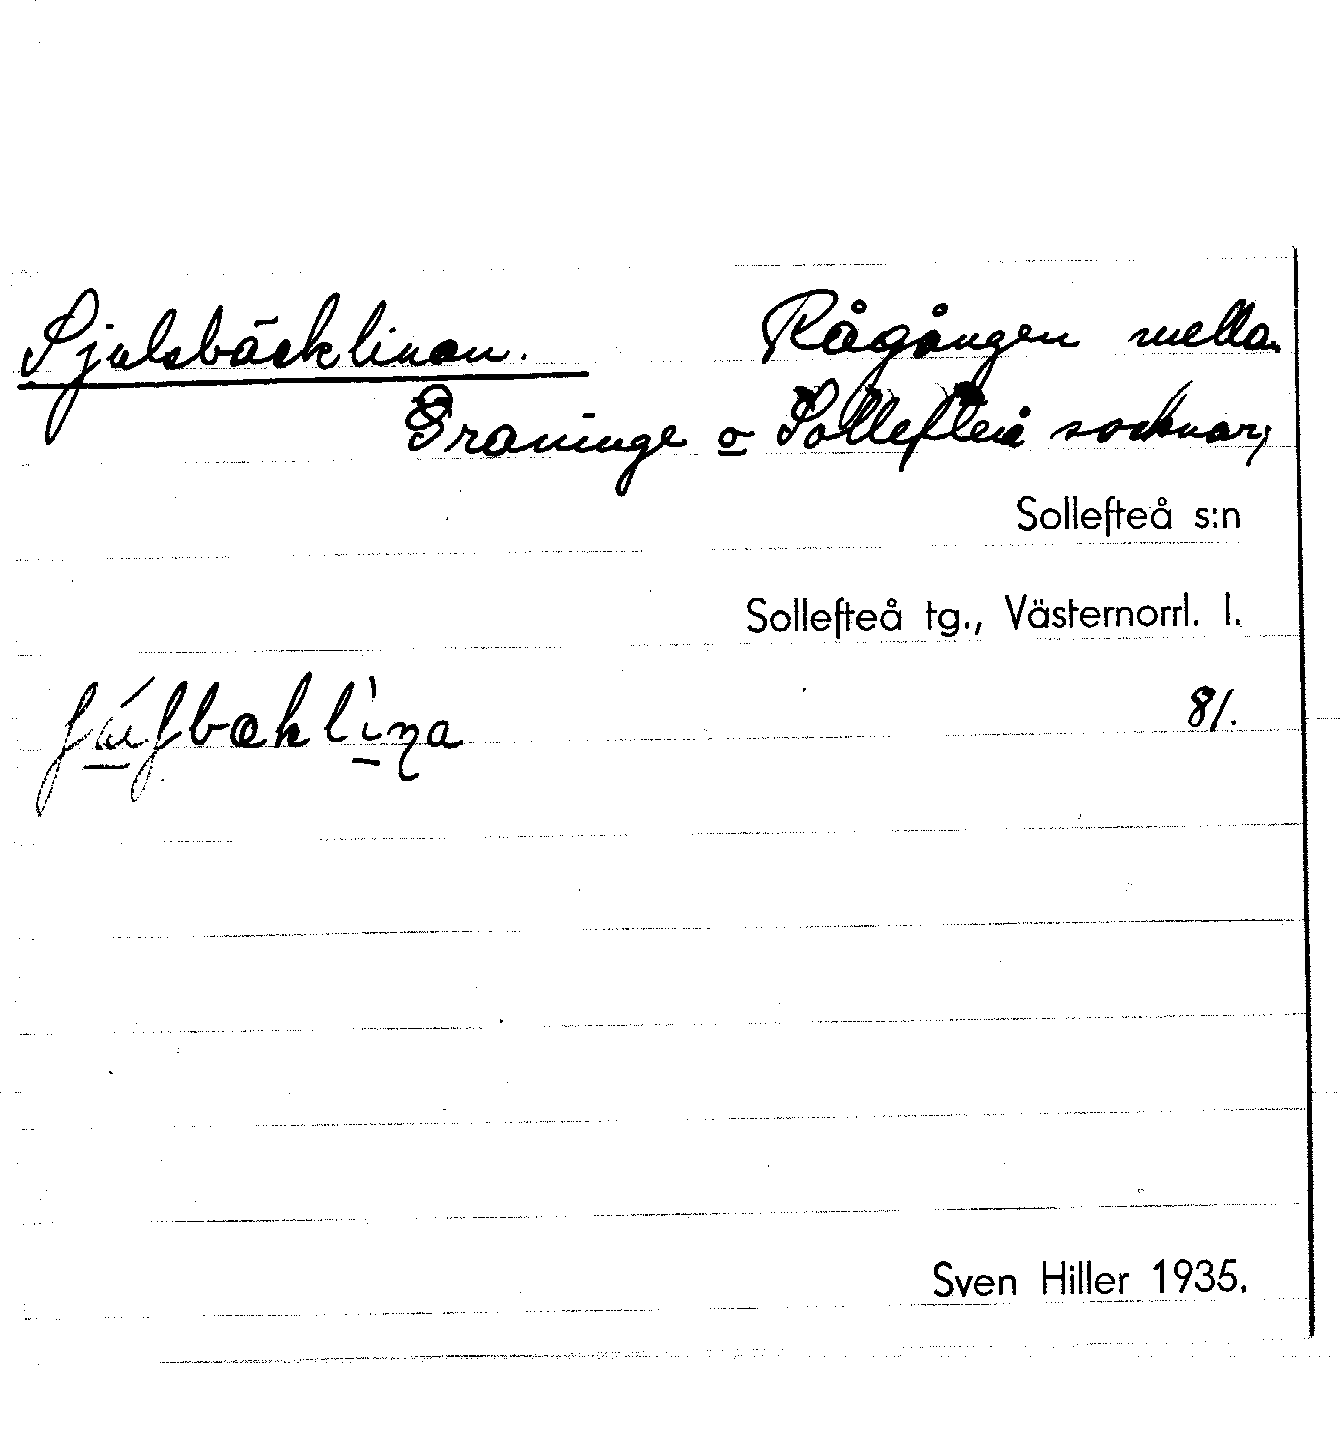 Sjulsbäcklinan. Rågången mellan
Graninge o Sollefteå socknar,
Sollefteå s:n
Sollefteå tg., Västernorrl. l.
81.
Sven Hiller 1935.